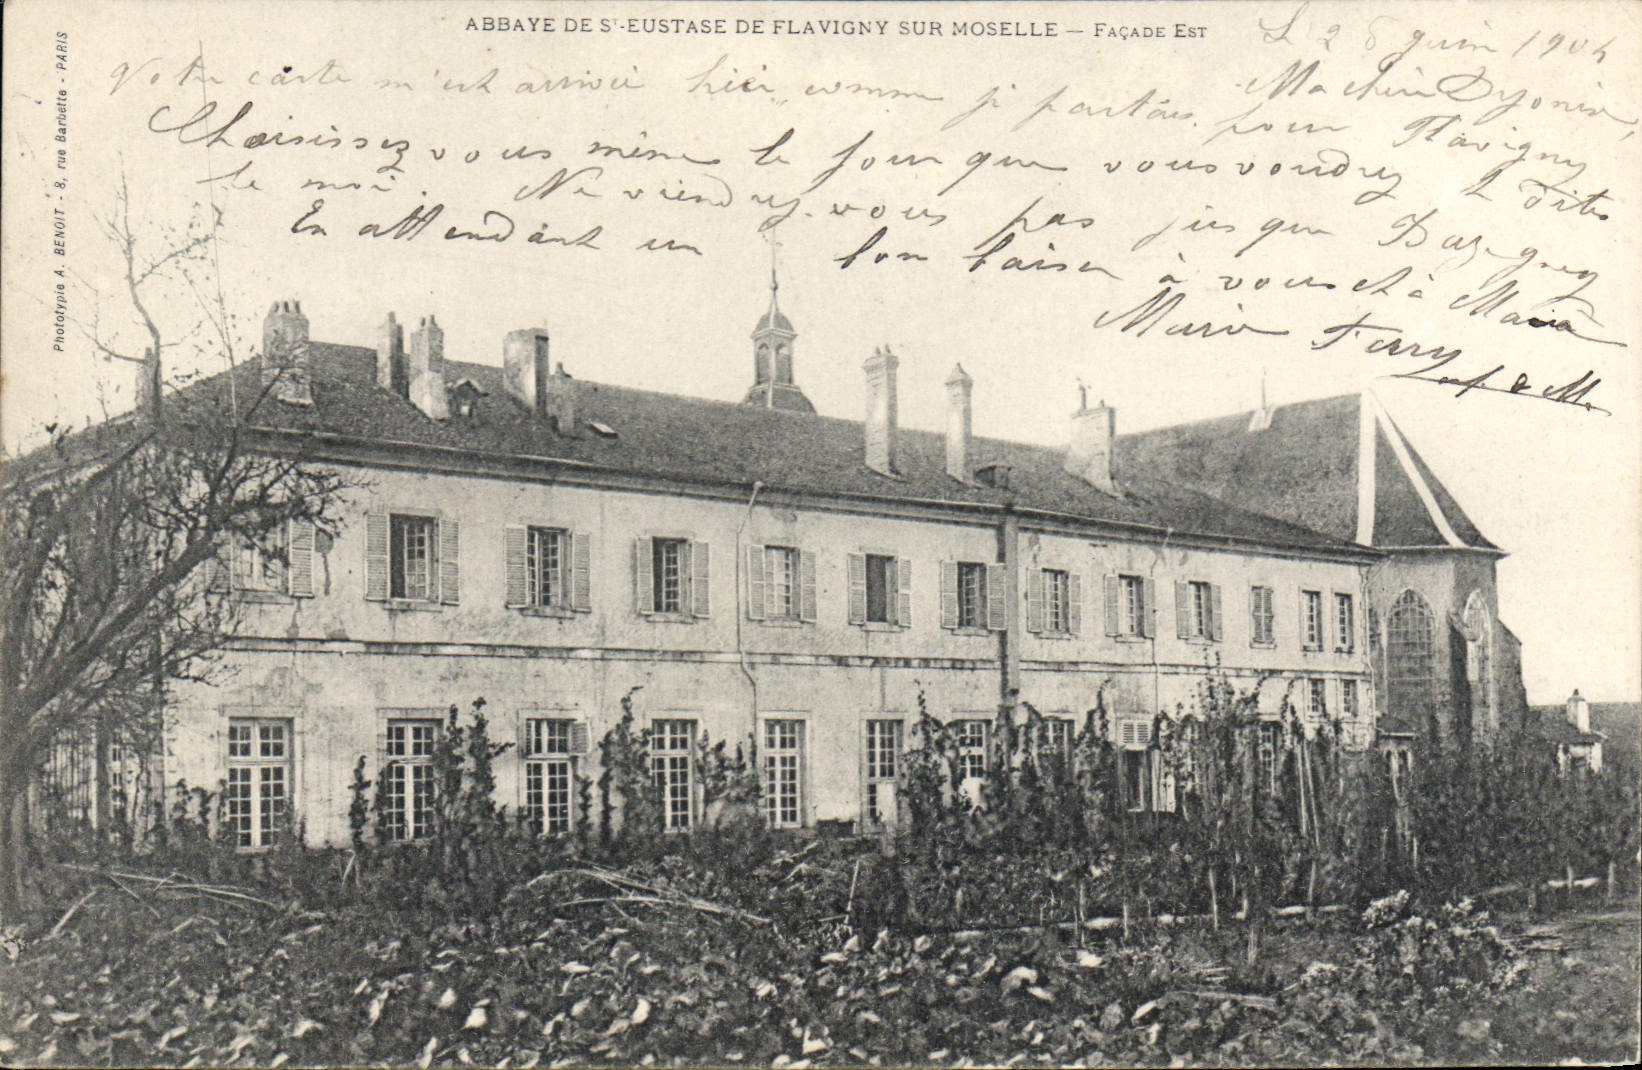 ABBAYE DE Sᵗ-EUSTASE DE FLAVIGNY SUR MOSELLE — FAÇADE EST
Phototypie A. BENOIT - 8, rue Barbette - PARIS
26 juin 1904
Ma chère Dyonise,
Votre carte m'est arrivée hier, comme je partais pour Flavigny
Choisissez vous même le jour que vous voudrez & dites
le moi. Ne viendrez-vous pas jusque
En attendant un bon baiser à vous et à Maria
Marie Ferry